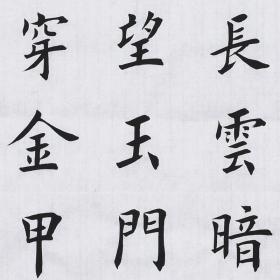 長雲暗
望玉門
穿金甲